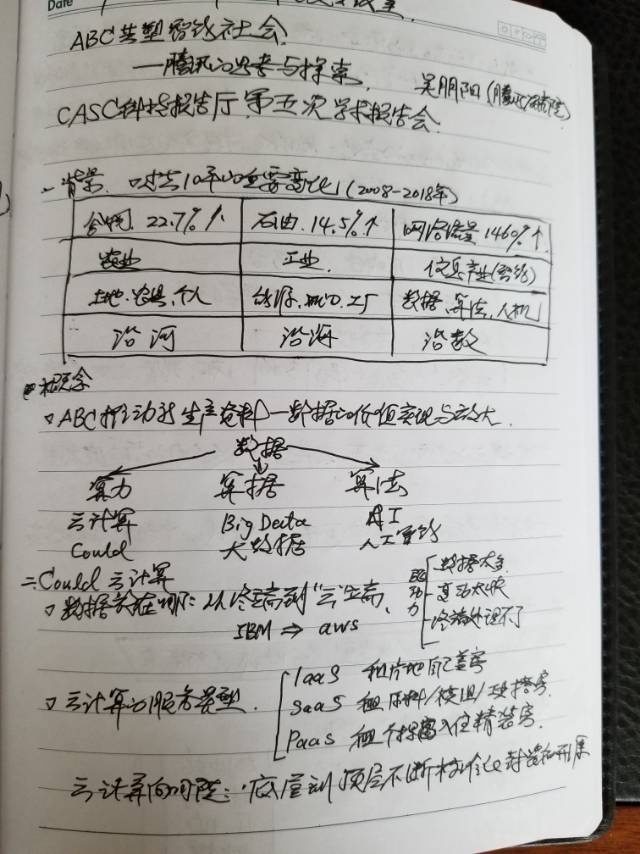 Date
ABC共塑智能社会
——腾讯的思考与探索
吴朋阳(腾讯研究院)
CASC科技报告厅 第五次学术报告会
一背景. 口过去10年的重要变化!(2008-2018年)
谷物 22.7%↑ 石油 14.5%↑ 网络流量 146%↑
农业 工业 信息产业(智能)
土地.农具.个人 能源. 工厂 数据、算法、人机
沿河 沿海 沿数
概念
ABC推动新生产资料—数据的价值实现与放大
数据
算力 算据 算法
云计算 Big Data AI
Could 大数据 人工智能
二Could 云计算
数据放在哪: 从终端到"云"端、
IBM ⇒ aws
驱动力
数据太多
变动太快
终端处理不了
云计算的服务类型.
IaaS 租片地自己盖房
SaaS 租原料/模组/ 搭房
PaaS 租个 入住精装房.
云计算的 : 底层到顶层不断标准化封装和